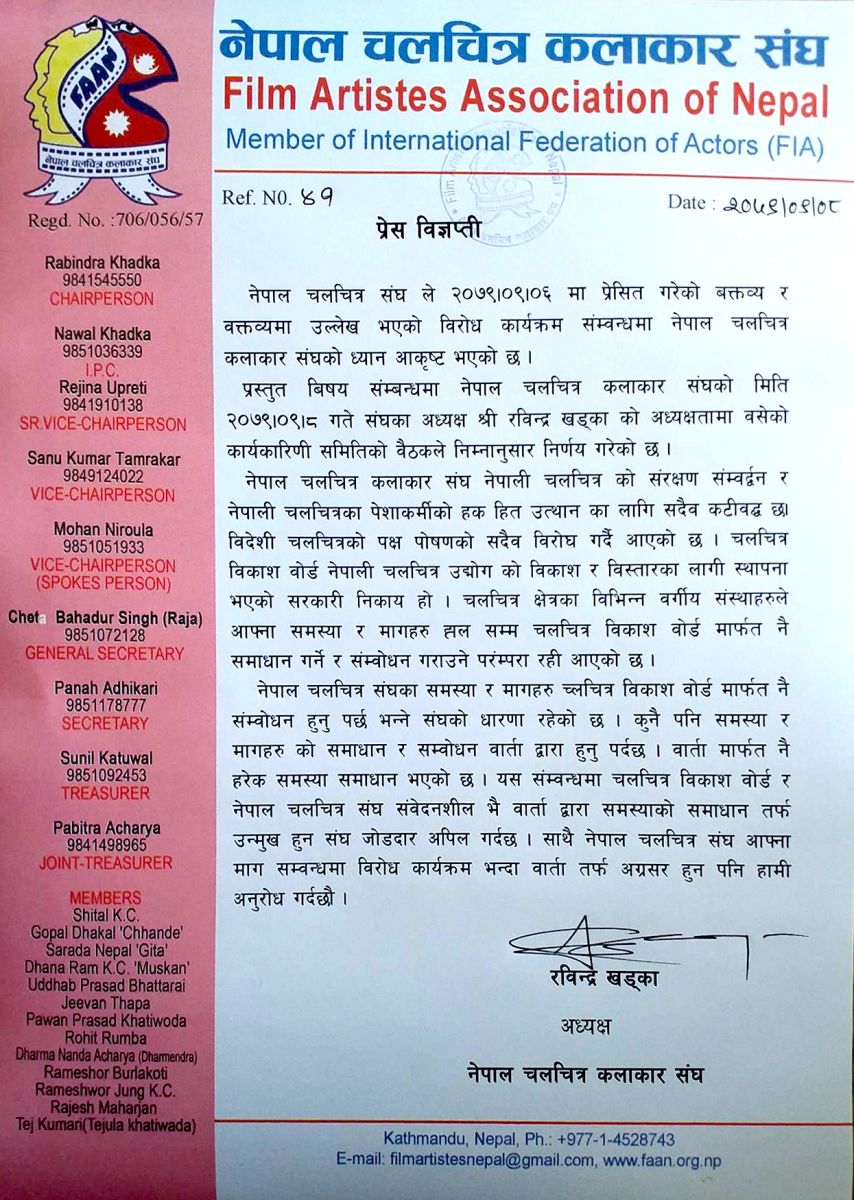 नेपाल चलचित्र कलाकार संघ
Film Artistes Association of Nepal
Member of International Federation of Actors (FIA)
FAAN
नेपाल चलचित्र कलाकार संघ
Regd. No. :706/056/57
Ref. N0. ४९
Date : २०७९|०९|०८
प्रेस विज्ञप्ती
Rabindra Khadka
9841545550
CHAIRPERSON
Nawal Khadka
9851036339
I.P.C.
Rejina Upreti
9841910138
SR.VICE-CHAIRPERSON
Sanu Kumar Tamrakar
9849124022
VICE-CHAIRPERSON
Mohan Niroula
9851051933
VICE-CHAIRPERSON
(SPOKES PERSON)
Cheta Bahadur Singh (Raja)
9851072128
GENERAL SECRETARY
Panah Adhikari
9851178777
SECRETARY
Sunil Katuwal
9851092453
TREASURER
Pabitra Acharya
9841498965
JOINT-TREASURER
MEMBERS
Shital K.C.
Gopal Dhakal 'Chhande'
Sarada Nepal 'Gita'
Dhana Ram K.C. 'Muskan'
Uddhab Prasad Bhattarai
Jeevan Thapa
Pawan Prasad Khatiwoda
Rohit Rumba
Dharma Nanda Acharya (Dharmendra)
Rameshor Burlakoti
Rameshwor Jung K.C.
Rajesh Maharjan
Tej Kumari(Tejula khatiwada)
नेपाल चलचित्र संघ ले २०७९|०९|०६ मा प्रेसित गरेको बक्तव्य र
वक्तव्यमा उल्लेख भएको विरोध कार्यक्रम संम्वन्धमा नेपाल चलचित्र
कलाकार संघको ध्यान आकृष्ट भएको छ ।
प्रस्तुत बिषय संम्बन्धमा नेपाल चलचित्र कलाकार संघको मिति
२०७९|०९|८ गते संघका अध्यक्ष श्री रविन्द्र खड्का को अध्यक्षतामा वसेको
कार्यकारिणी समितिको वैठकले निम्नानुसार निर्णय गरेको छ ।
नेपाल चलचित्र कलाकार संघ नेपाली चलचित्र को संरक्षण संम्वर्द्वन र
नेपाली चलचित्रका पेशाकर्मीको हक हित उत्थान का लागि सदैव कटीवद्व छ।
विदेशी चलचित्रको पक्ष पोषणको सदैव विरोध गर्दै आएको छ । चलचित्र
विकाश वोर्ड नेपाली चलचित्र उद्योग को विकाश र विस्तारका लागी स्थापना
भएको सरकारी निकाय हो । चलचित्र क्षेत्रका विभिन्न वर्गीय संस्थाहरुले
आफ्ना समस्या र मागहरु हाल सम्म चलचित्र विकाश वोर्ड मार्फत नै
समाधान गर्ने र संम्वोधन गराउने परंम्परा रही आएको छ ।
नेपाल चलचित्र संघका समस्या र मागहरु च्लचित्र विकाश वोर्ड मार्फत नै
संम्वोधन हुनु पर्छ भन्ने संघको धारणा रहेको छ । कुनै पनि समस्या र
मागहरु को समाधान र सम्वोधन वार्ता द्वारा हुनु पर्दछ । वार्ता मार्फत नै
हरेक समस्या समाधान भएको छ । यस संम्वन्धमा चलचित्र विकाश वोर्ड र
नेपाल चलचित्र संघ संवेदनशील भै वार्ता द्वारा समस्याको समाधान तर्फ
उन्मुख हुन संघ जोडदार अपिल गर्दछ । साथै नेपाल चलचित्र संघ आफ्ना
माग सम्वन्धमा विरोध कार्यक्रम भन्दा वार्ता तर्फ अग्रसर हुन पनि हामी
अनुरोध गर्दछौ ।
रविन्द्र खड्का
अध्यक्ष
नेपाल चलचित्र कलाकार संघ
Kathmandu, Nepal, Ph.: +977-1-4528743
E-mail: filmartistesnepal@gmail.com, www.faan.org.np